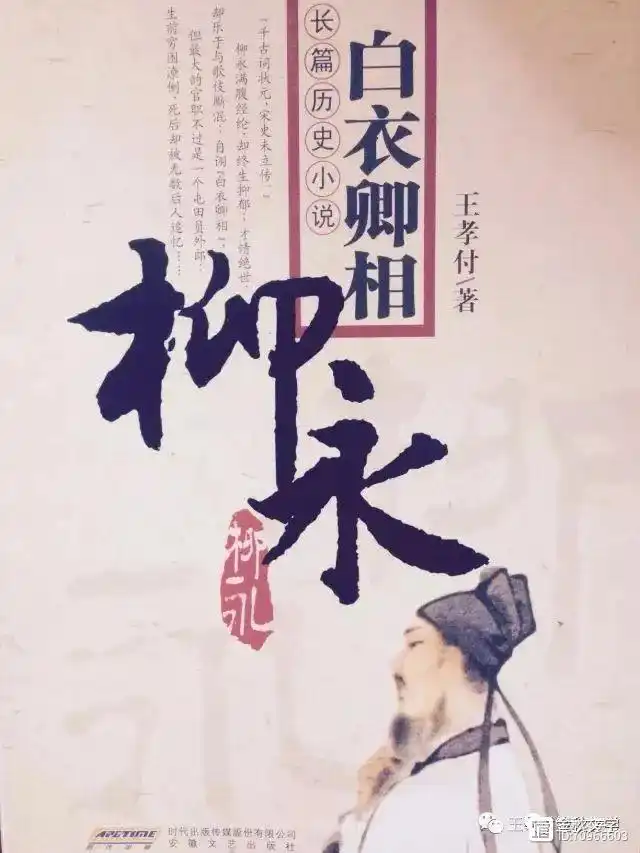 白衣卿相
王孝付/著
长篇历史小说
“千古词状元,宋史未立传。”
柳永满腹经纶,却终生抑郁;才情绝世,
却乐于与歌伎厮混;自诩“白衣卿相”,
但最大的官职不过是一个屯田员外郎;
生前穷困潦倒,死后却被无数后人追忆……
柳永
柳永
时代出版传媒股份有限公司
安徽文艺出版社